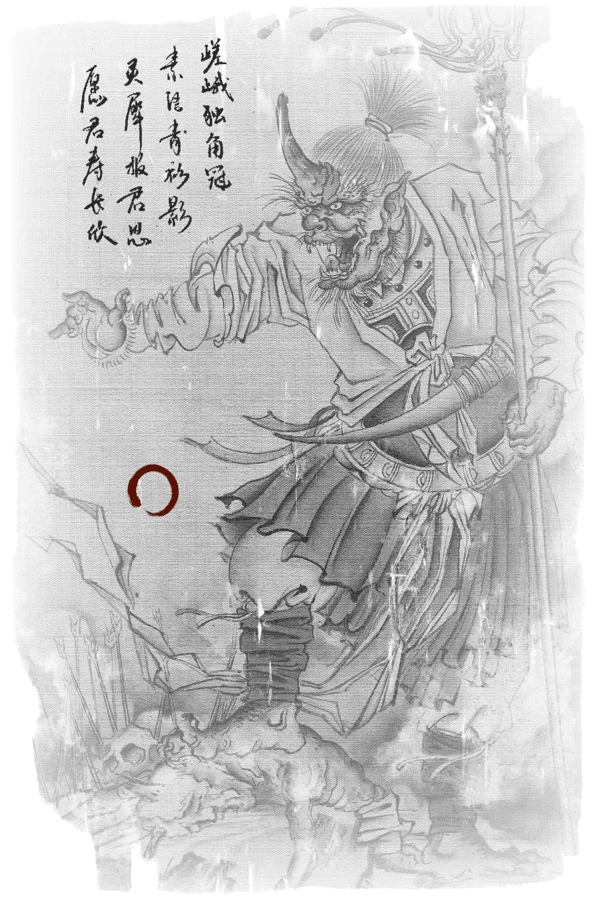 嵯峨独角冠
素青衫影
灵犀报君恩
愿君寿长欣